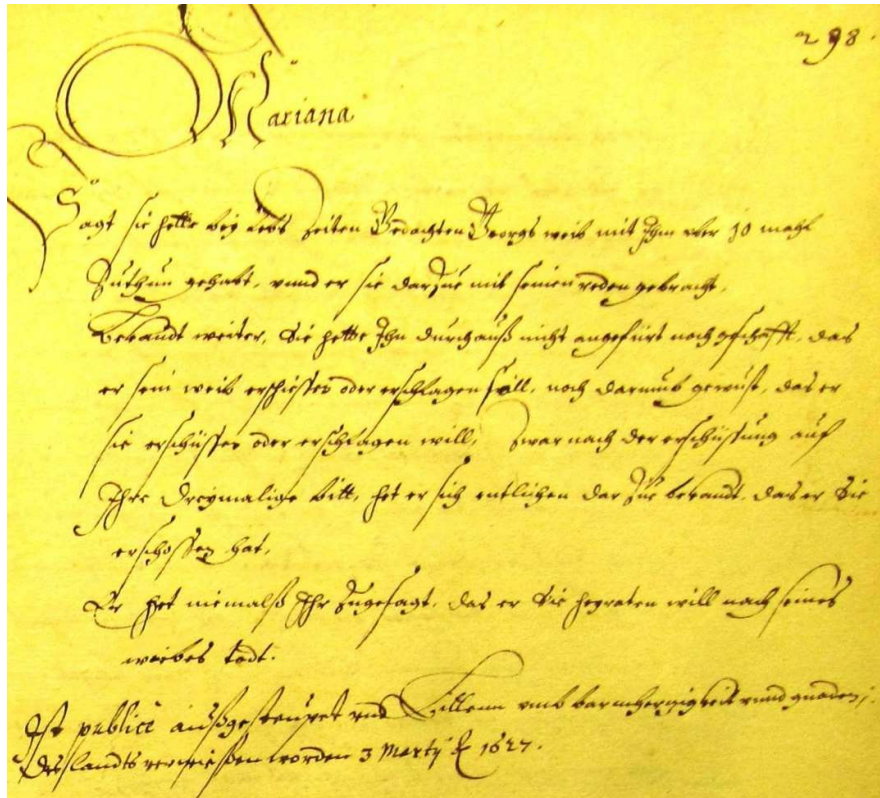 298.
Mariana
Sagt sie hette bey Lebs Zeiten Bedachten Georgs weib mit Ihm vber 10 mahl
Zuthun gehabt, vnnd er sie darzue mit seinen reden gebracht,
Bekandt weiter, Sie hette Ihn durchauß nicht angefürt noch geschafft, das
er sein weib erschiessen oder erschlagen soll, noch darumb gewust, das er
sie erschüssen oder erschlagen will, Zwar nach der erschüssung auf
Ihre dreymalige bitt, het er sich entlichen darzue bekandt, das er Sie
erschossen hat,
Er het niemalß Ihr Zugesagt, das er Sie heyraten will nach seines
weibes todt.
Ist publicè außgesteupet vnd willenn vmb barmhertzigkeit vnnd gnaden,
des landts verwiesßen worden 3 Marty 1627.